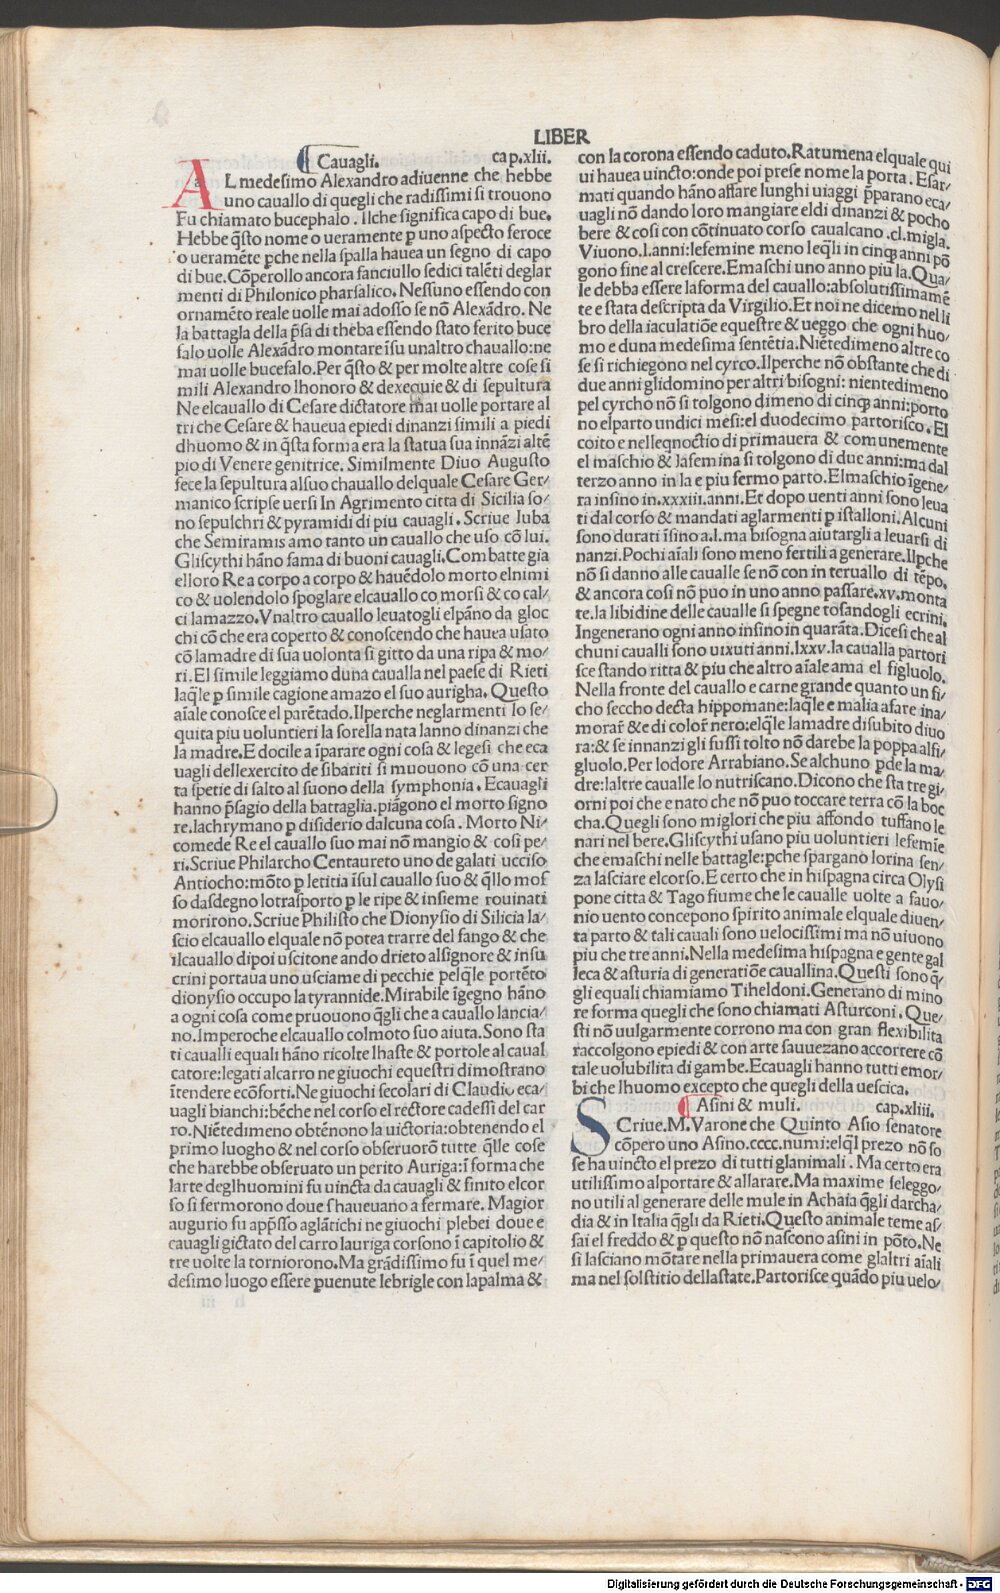 LIBER
Cauagli. cap.xlii.
AL medesimo Alexandro adiuenne che hebbe
uno cauallo di quegli che radissimi si trouono
Fu chiamato bucephalo. Ilche significa capo di bue.
Hebbe q̃sto nome o ueramente ꝑ uno aspecto feroce
o ueramẽte ꝑche nella spalla hauea un segno di capo
di bue. Cõperollo ancora fanciullo sedici talẽti deglar
menti di Philonico pharsalico. Nessuno essendo con
ornamẽto reale uolle mai adosso se nõ Alexãdro. Ne
la battagla della p̃sa di theba essendo stato ferito buce
falo uolle Alexãdro montare ĩsu unaltro chauallo:ne
mai uolle bucefalo. Per q̃sto & per molte altre cose si
mili Alexandro lhonoro & dexequie & di sepultura
Ne elcauallo di Cesare dictatore mai uolle portare al
tri che Cesare & haueua epiedi dinanzi simili a piedi
dhuomo & in q̃sta forma era la statua sua innãzi altẽ
pio di Venere genitrice. Similmente Diuo Augusto
fece la sepultura alsuo chauallo delquale Cesare Ger/
manico scripse uersi In Agrimento citta di Sicilia so/
no sepulchri & pyramidi di piu cauagli. Scriue Iuba
che Semiramis amo tanto un cauallo che uso cõ lui.
Gliscythi hãno fama di buoni cauagli. Combatte gia
elloro Re a corpo a corpo & hauẽdolo morto elnimi
co & uolendolo spoglare elcauallo co morsi & co cal/
ci lamazzo. Vnaltro cauallo leuatogli elpãno da gloc
chi cõ che era coperto & conoscendo che hauea usato
cõ lamadre di sua uolonta si gitto da una ripa & mo/
ri. El simile leggiamo duna caualla nel paese di Rieti
laq̃le ꝑ simile cagione amazo el suo aurigha. Questo
aĩale conosce el parẽtado. Ilperche neglarmenti lo se/
quita piu uoluntieri la sorella nata lanno dinanzi che
la madre. E docile a ĩparare ogni cosa & legesi che eca
uagli dellexercito de sibariti si muouono cõ una cer
ta spetie di salto al suono della symphonia. Ecauagli
hanno p̃sagio della battaglia. piãgono el morto signo
re. lachrymano ꝑ disiderio dalcuna cosa. Morto Ni/
comede Re el cauallo suo mai nõ mangio & cosi pe/
ri. Scriue Philarcho Centaureto uno de galati ucciso
Antiocho:mõto ꝑ letitia ĩsul cauallo suo & q̃llo mos
so dasdegno lotrasporto ꝑ le ripe & insieme rouinati
morirono. Scriue Philisto che Dionysio di Silicia la/
scio elcauallo elquale nõ potea trarre del fango & che
ilcauallo dipoi uscitone ando drieto alsignore & insu
crini portaua uno usciame di pecchie pelq̃le portẽto
dionysio occupo la tyrannide. Mirabile ĩgegno hãno
a ogni cosa come pruouono q̃gli che a cauallo lancia/
no. Imperoche elcauallo colmoto suo aiuta. Sono sta
ti caualli equali hãno ricolte lhaste & portole al caual
catore:legati alcarro ne giuochi equestri dimostrano
ĩtendere ecõforti. Ne giuochi secolari di Claudio eca/
uagli bianchi: bẽche nel corso el rectore cadessi del car
ro. Niẽtedimeno obtẽnono la uictoria:obtenendo el
primo luogho & nel corso obseruorõ tutte q̃lle cose
che harebbe obseruato un perito Auriga: ĩ forma che
larte deglhuomini fu uincta da cauagli & finito elcor
so si fermorono doue shaueuano a fermare. Magior
augurio fu app̃sso aglãtichi ne giuochi plebei doue e
cauagli gictato del carro lauriga corsono ĩ capitolio &
tre uolte la torniorono. Ma grãdissimo fu ĩ quel me/
desimo luogo essere puenute lebrigle con lapalma &
con la corona essendo caduto. Ratumena elquale qui
ui hauea uincto:onde poi prese nome la porta. Esar/
mati quando hãno affare lunghi uiaggi p̃parano eca/
uagli nõ dando loro mangiare eldi dinanzi & pocho
bere & cosi con cõtinuato corso caualcano .cl. migla.
Viuono .l. anni: lefemine meno leq̃li in cinq̃ anni põ
gono fine al crescere. Emaschi uno anno piu la. Qua/
le debba essere laforma del cauallo:absolutissimamẽ
te e stata descripta da Virgilio. Et noi ne dicemo nel li
bro della iaculatiõe equestre & ueggo che ogni huo/
mo e duna medesima sentẽtia. Niẽtedimeno altre co
se si richiegono nel cyrco. Ilperche nõ obstante che di
due anni glidomino per altri bisogni: nientedimeno
pel cyrcho nõ si tolgono dimeno di cinq̃ anni:porto
no elparto undici mesi:el duodecimo partorisco. El
coito e nelleqnoctio di primauera & comunemente
el maschio & lafemina si tolgono di due anni:ma dal
terzo anno in la e piu fermo parto. Elmaschio ĩgene/
ra insino in .xxxiii. anni. Et dopo uenti anni sono leua
ti dal corso & mandati aglarmenti ꝑ istalloni. Alcuni
sono durati ĩsino a .l. ma bisogna aiutargli a leuarsi di
nanzi. Pochi aĩali sono meno fertili a generare. Ilpche
nõ si danno alle caualle se nõ con in teruallo di tẽpo,
& ancora cosi nõ puo in uno anno passare .xv. monta
te. la libidine delle caualle si spegne tosandogli ecrini.
Ingenerano ogni anno insino in quarãta. Dicesi che al
chuni caualli sono uixuti anni .lxxv. la caualla partori
sce stando ritta & piu che altro aĩale ama el figluolo.
Nella fronte del cauallo e carne grande quanto un fi/
cho seccho decta hippomane:laq̃le e malia afare ina/
morar̃ & e di color̃ nero:elq̃le lamadre disubito diuo
ra:& se innanzi gli fussi tolto nõ darebe la poppa alfi/
gluolo. Per lodore Arrabiano. Se alchuno ꝑde la ma/
dre: laltre caualle lo nutriscano. Dicono che sta tre gi/
orni poi che e nato che nõ puo toccare terra cõ la boc
cha. Quegli sono migliori che piu affondo tuffano le
nari nel bere. Gliscythi usano piu uoluntieri lefemĩe
che emaschi nelle battagle:ꝑche spargano lorina sen/
za lasciare elcorso. E certo che in hispagna circa Olysi
pone citta & Tago fiume che le caualle uolte a fauo/
nio uento concepono spirito animale elquale diuen/
ta parto & tali cauali sono uelocissimi ma nõ uiuono
piu che tre anni. Nella medesima hispagna e gente gal
leca & asturia di generatiõe cauallina. Questi sono q̃/
gli equali chiamiamo Tiheldoni. Generano di mino
re forma quegli che sono chiamati Asturconi. Que/
sti nõ uulgarmente corrono ma con gran flexibilita
raccolgono epiedi & con arte sauuezano accorrere cõ
tale uolubilita di gambe. Ecauagli hanno tutti emor/
bi che lhuomo excepto che quegli della uescica.
Asini & muli. cap.xliii.
SCriue. M. Varone che Quinto Asio senatore
cõpero uno Asino .cccc. numi:elq̃l prezo nõ so
se ha uincto el prezo di tutti glanimali. Ma certo era
utilissimo alportare & allarare. Ma maxime seleggo/
no utili al generare delle mule in Achaia q̃gli darcha/
dia & in Italia q̃gli da Rieti. Questo animale teme as/
sai el freddo & ꝑ questo nõ nascono asini in põto. Ne
si lasciano mõtare nella primauera come glaltri aĩali
ma nel solstitio dellastate. Partorisce quãdo piu uelo/
Digitalisierung gefördert durch die Deutsche Forschungsgemeinschaft - DFG